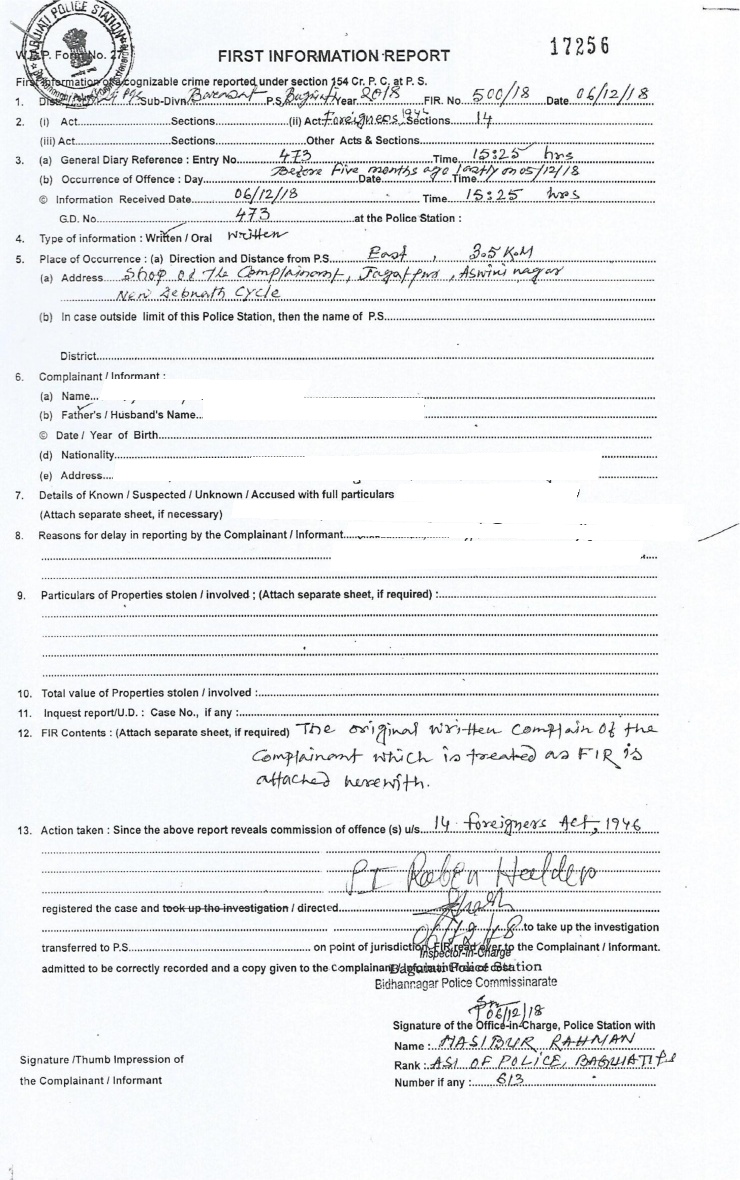 BAGUIATI POLICE STATION
W.B.P. Form No. 27
FIRST INFORMATION REPORT
17256
First Information of a cognizable crime reported under section 154 Cr. P. C. at P. S.
1. Dist. Sub-Divn. Barasat P.S. Baguiati Year 2018 FIR. No 500/18 Date 06/12/18
2. (i) Act Sections (ii) Act Foreigners 1946 Sections 14
(iii) Act Sections Other Acts & Sections
3. (a) General Diary Reference : Entry No. 473 Time 15:25 hrs
Before Five months ago lastly on 05/12/18
(b) Occurrence of Offence : Day Date Time
© Information Received Date 06/12/18 Time 15:25 hrs
G.D. No 473 at the Police Station :
4. Type of information : Written / Oral Written
5. Place of Occurrence : (a) Direction and Distance from P.S. East , 3.5 K.M
(a) Address Shop of the Complainant, Jagatpur, Aswini nagar
New Debnath Cycle
(b) In case outside limit of this Police Station, then the name of P.S.
District
6. Complainant / Informant :
(a) Name
(b) Father's / Husband's Name
© Date / Year of Birth
(d) Nationality
(e) Address
7. Details of Known / Suspected / Unknown / Accused with full particulars
(Attach separate sheet, if necessary)
8. Reasons for delay in reporting by the Complainant / Informant
9. Particulars of Properties stolen / involved ; (Attach separate sheet, if required) :
10. Total value of Properties stolen / involved :
11. Inquest report/U.D. : Case No., if any :
12. FIR Contents : (Attach separate sheet, if required) The original written complain of the
Complainant which is treated as FIR is
attached herewith.
13. Action taken : Since the above report reveals commission of offence (s) u/s. 14 foreigners Act, 1946
PI Raben Halder
registered the case and took up the investigation / directed
to take up the investigation
transferred to P.S. on point of jurisdiction. FIR read over to the Complainant / Informant.
Inspector-in-Charge
admitted to be correctly recorded and a copy given to the Complainant / Informant free of cost
Baguiati Police Station
Bidhannagar Police Commissinarate
06/12/18
Signature of the Office-in-Charge, Police Station with
Name : HASIBUR RAHMAN
Signature /Thumb Impression of
Rank : ASI OF POLICE, BAGUIATI PS
the Complainant / Informant
Number if any : 613